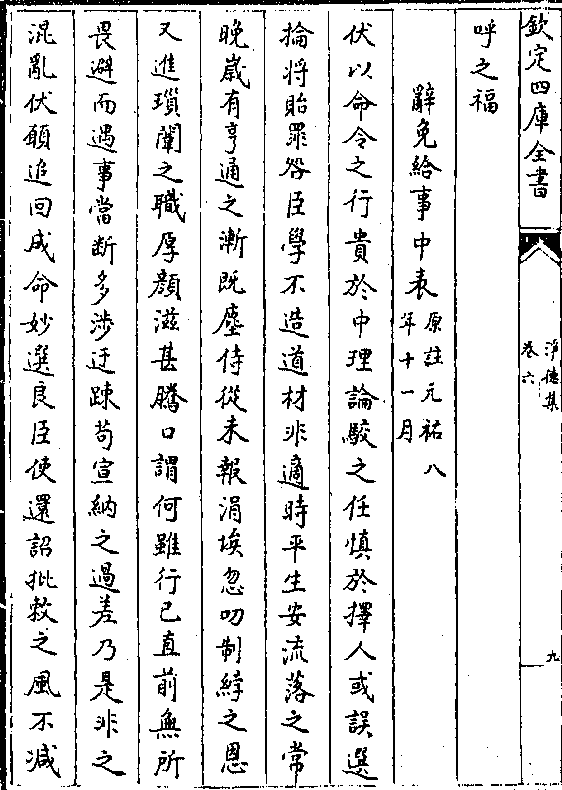 欽定四庫全書
淨德集
卷六
九
呼之福
辭免給事中表原註元祐八
年十一月
伏以命令之行貴於中理論駁之任慎於擇人或誤選
掄將貽罪咎臣學不造道材非適時平生安流落之常
晚嵗有亨通之漸既塵侍從未報涓埃忽叨制綍之恩
又進瑣闈之職厚顔滋甚騰口謂何雖行已直前無所
畏避而遇事當断多渉迂踈苟宣納之過差乃是非之
混亂伏願追囘成命妙選良臣使還詔批敕之風不減